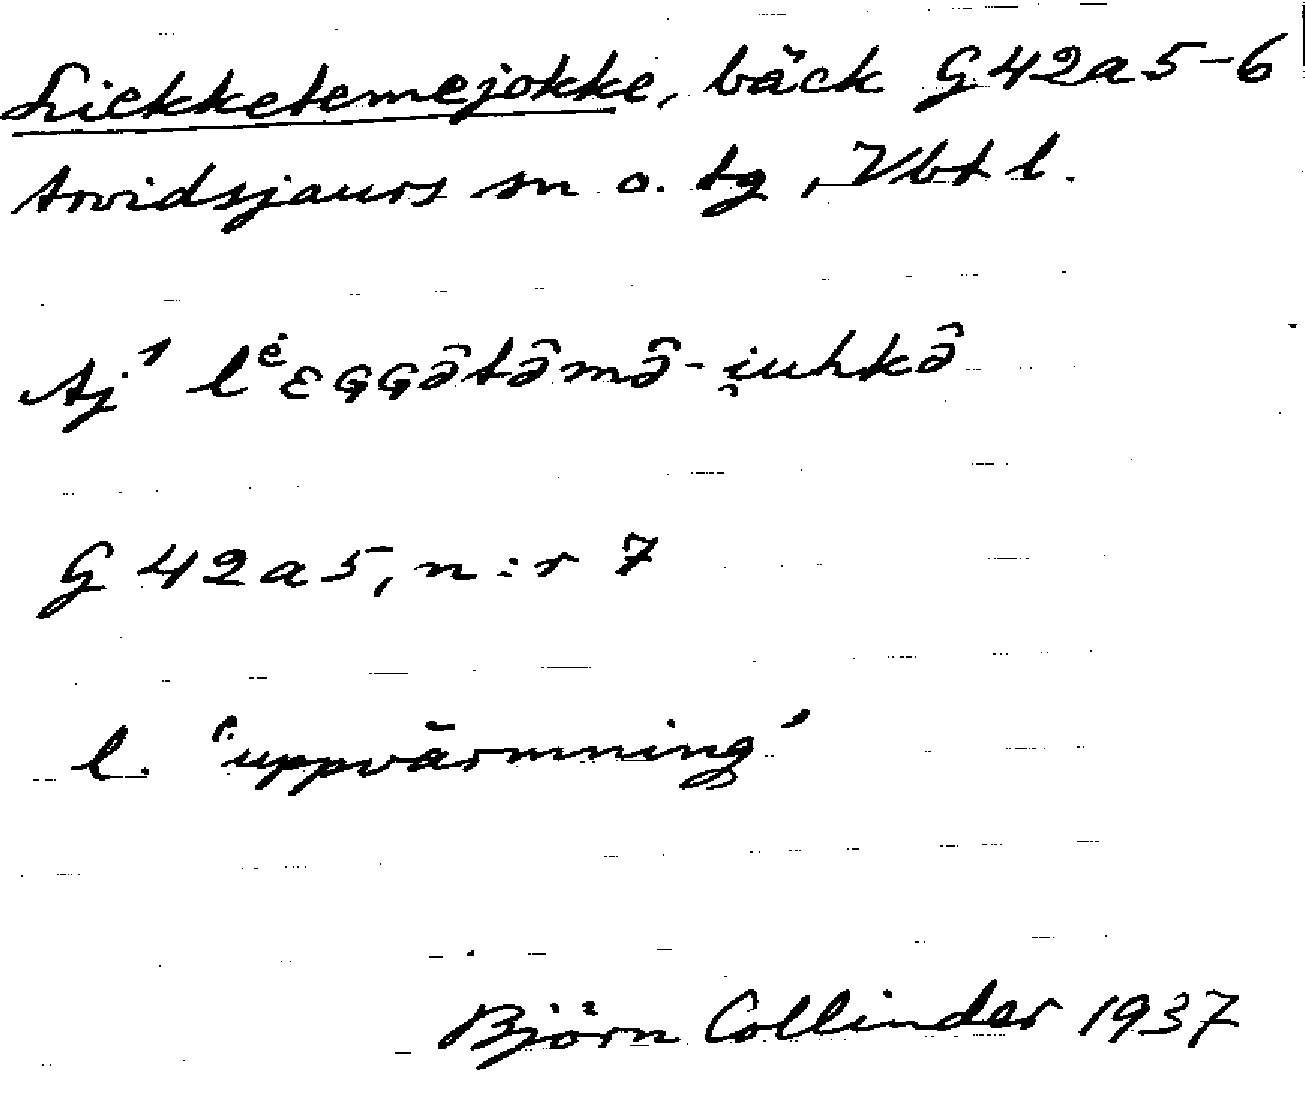 Liekketemejokke, bäck G42a5-6
Arvidsjaurs sn o. tg, Vbt l.
Aj¹ lᵉ̇ɛGGə̂tə̂mə̂-i̯uhkə̂
G 42a5, n:r 7
l. 'uppvärmning'
Björn Collinder 1937